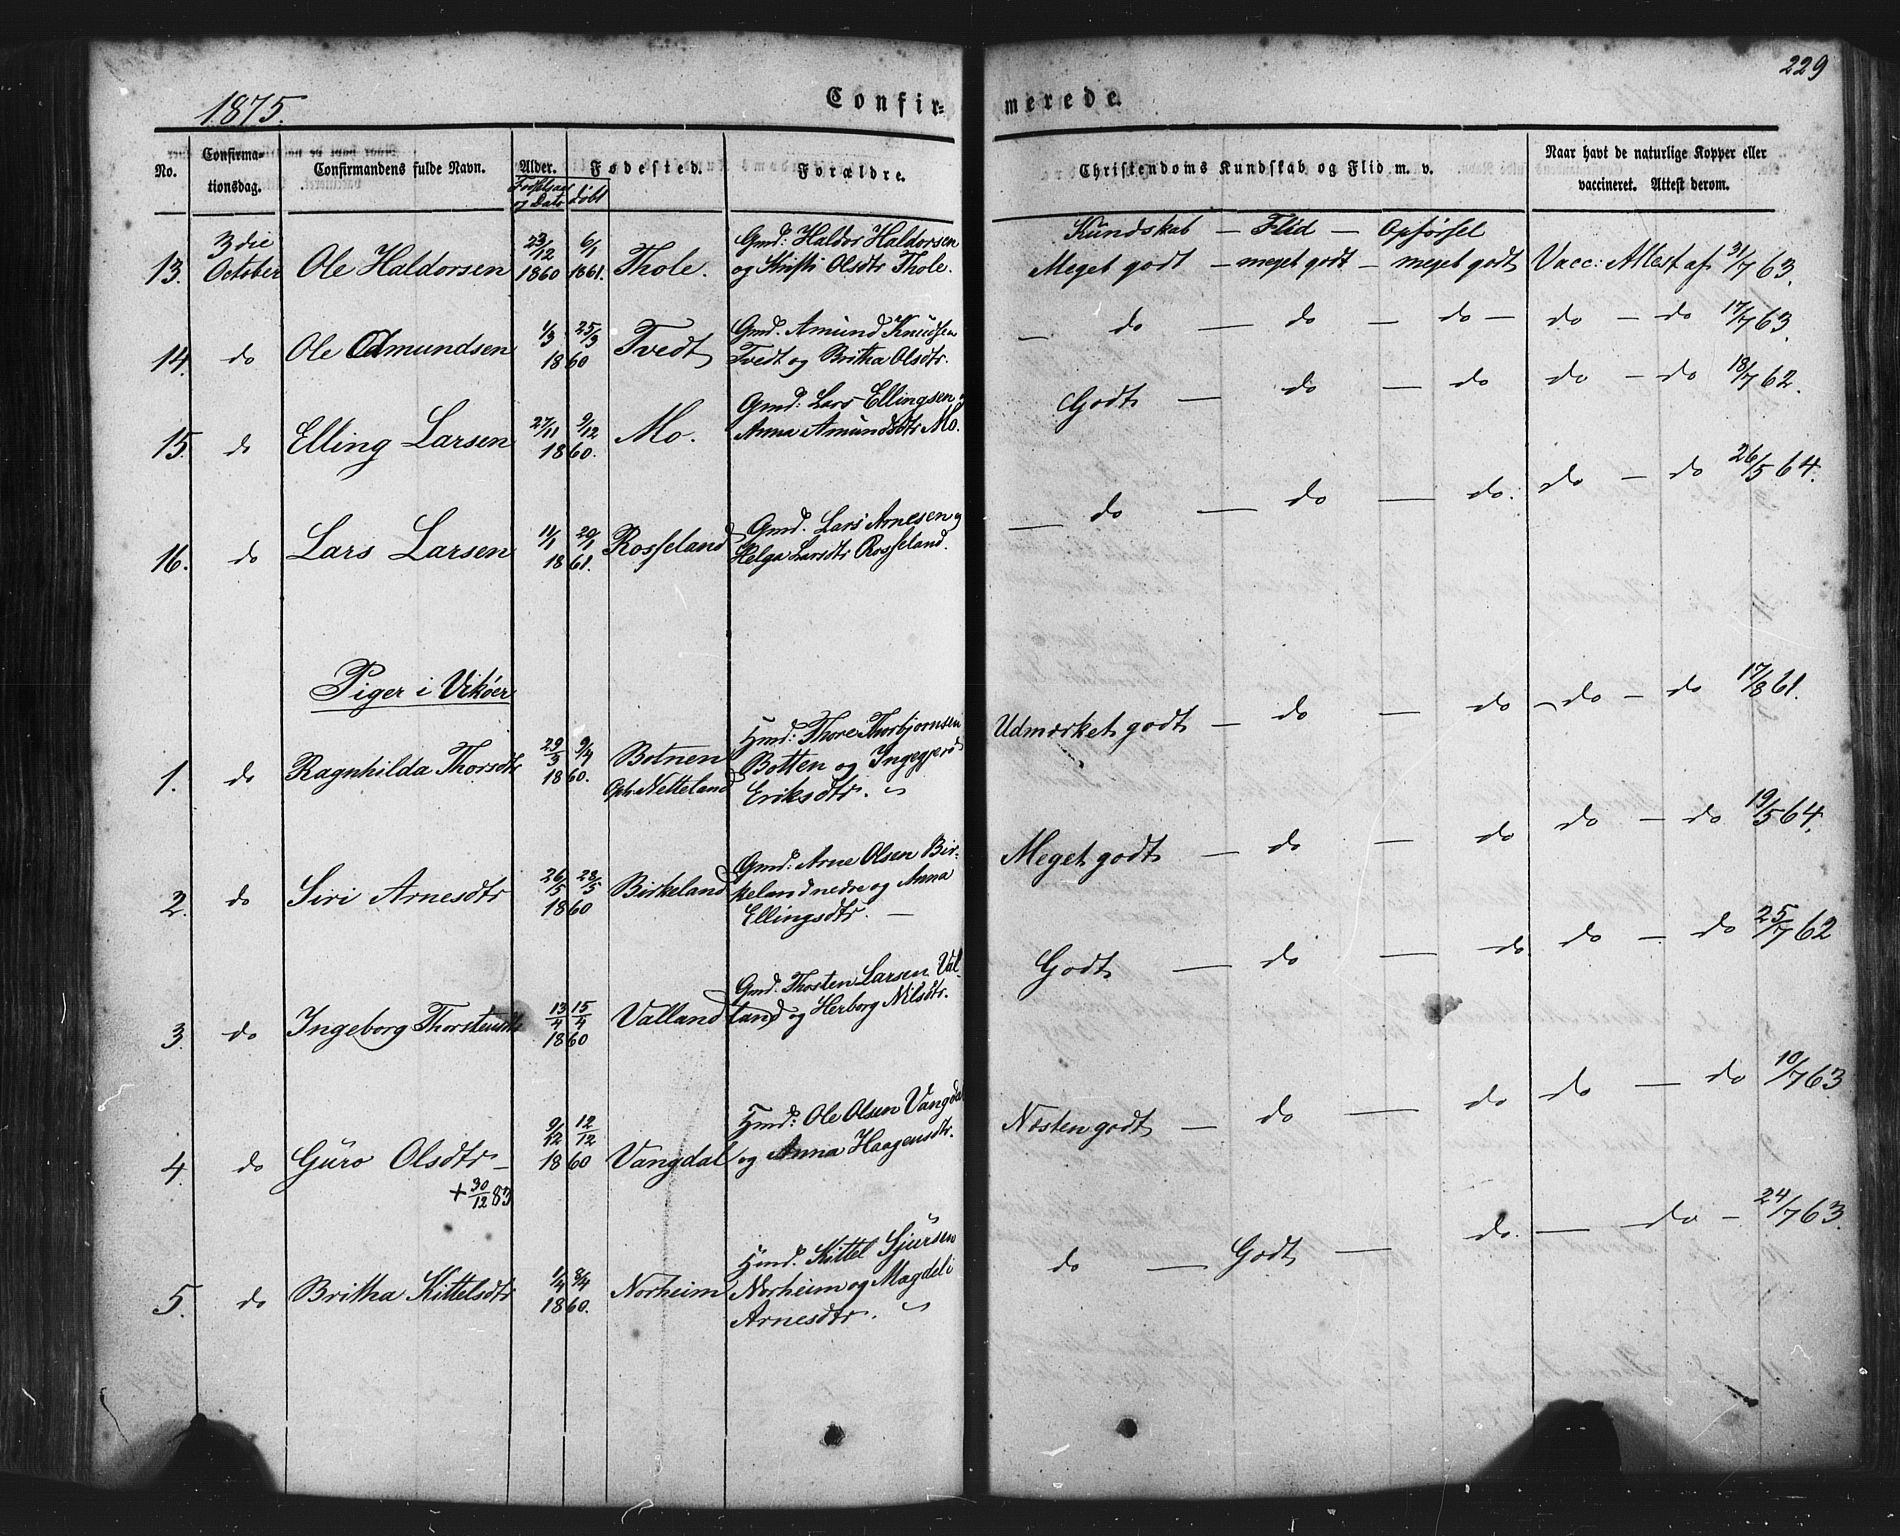 229
1875.
Confir- merede.
No.
Confirma-
tionsdag.
Confirmandens fulde Navn.
Alder.
Fødselsaar
og Dato
døbt
Fødested.
Forældre.
Christendoms Kundskab og Flid m. v.
Naar havt de naturlige Kopper eller
vaccineret. Attest derom.
Kundskab — Flid — Opførsel
13. 3die October Ole Haldorsen 23/12 1860 6/1 1861. Thole. Gmd: Haldor Haldorsen
og Kristi Olsdtr Thole.
Meget godt — meget godt — meget godt Vacc: Attest af 31/7 63.
14. do Ole Amundsen 1/3 25/3 1860 Tvedt Gmd. Amund Knudsen
Tvedt og Britha Olsdtr.
— do — do — do — do — do 17/7 63.
15. do Elling Larsen 27/11 9/12 1860. Mo. Gmd: Lars Ellingsen
Anna Amundsdtr Mo.
Godt — do — do do — do 18/7 62.
16. do Lars Larsen 11/1 20/1 1861. Rosseland Gmd. Lars Arnesen og
Helga Larsdtr Rosseland.
— do — do — do. do — do 26/5 64.
Piger i Vikøer
1. do Ragnhilda Thorsdtr 29/3 9/4 1860. Botnen
Oph. Netteland
Hmd: Thore Thorbjørnsen
Botten og Ingegjerd
Eriksdtr.
Udmærket godt — do — do — do — do 17/8 61.
2. do Siri Arnesdtr 26/5 28/5 1860 Birkeland Gmd: Arne Olsen Bir-
keland nedre og Anna
Ellingsdtr. —
Meget godt — do — do do — do 19/5 64.
3. do Ingeborg Thorstensdtr 13/4 15/4 1860 Valland Gmd. Thosten Larsen Val-
land og Herborg Nilsdtr.
Godt — do — do do — do 25/7 62
4. do Guro Olsdtr — 9/12 12/12 1860 Vangdal Hmd: Ole Olsen Vangdal
og Anna Haagensdtr.
+ 30/12 83
Næsten godt — do — do do — do 10/7 63
5. do Britha Kittelsdtr 1/4 8/4 1860. Norheim Hmd. Kittel Sjursen
Norheim og Magdeli
Arnesdtr.
do — Godt — do. — do — 24/7 63.